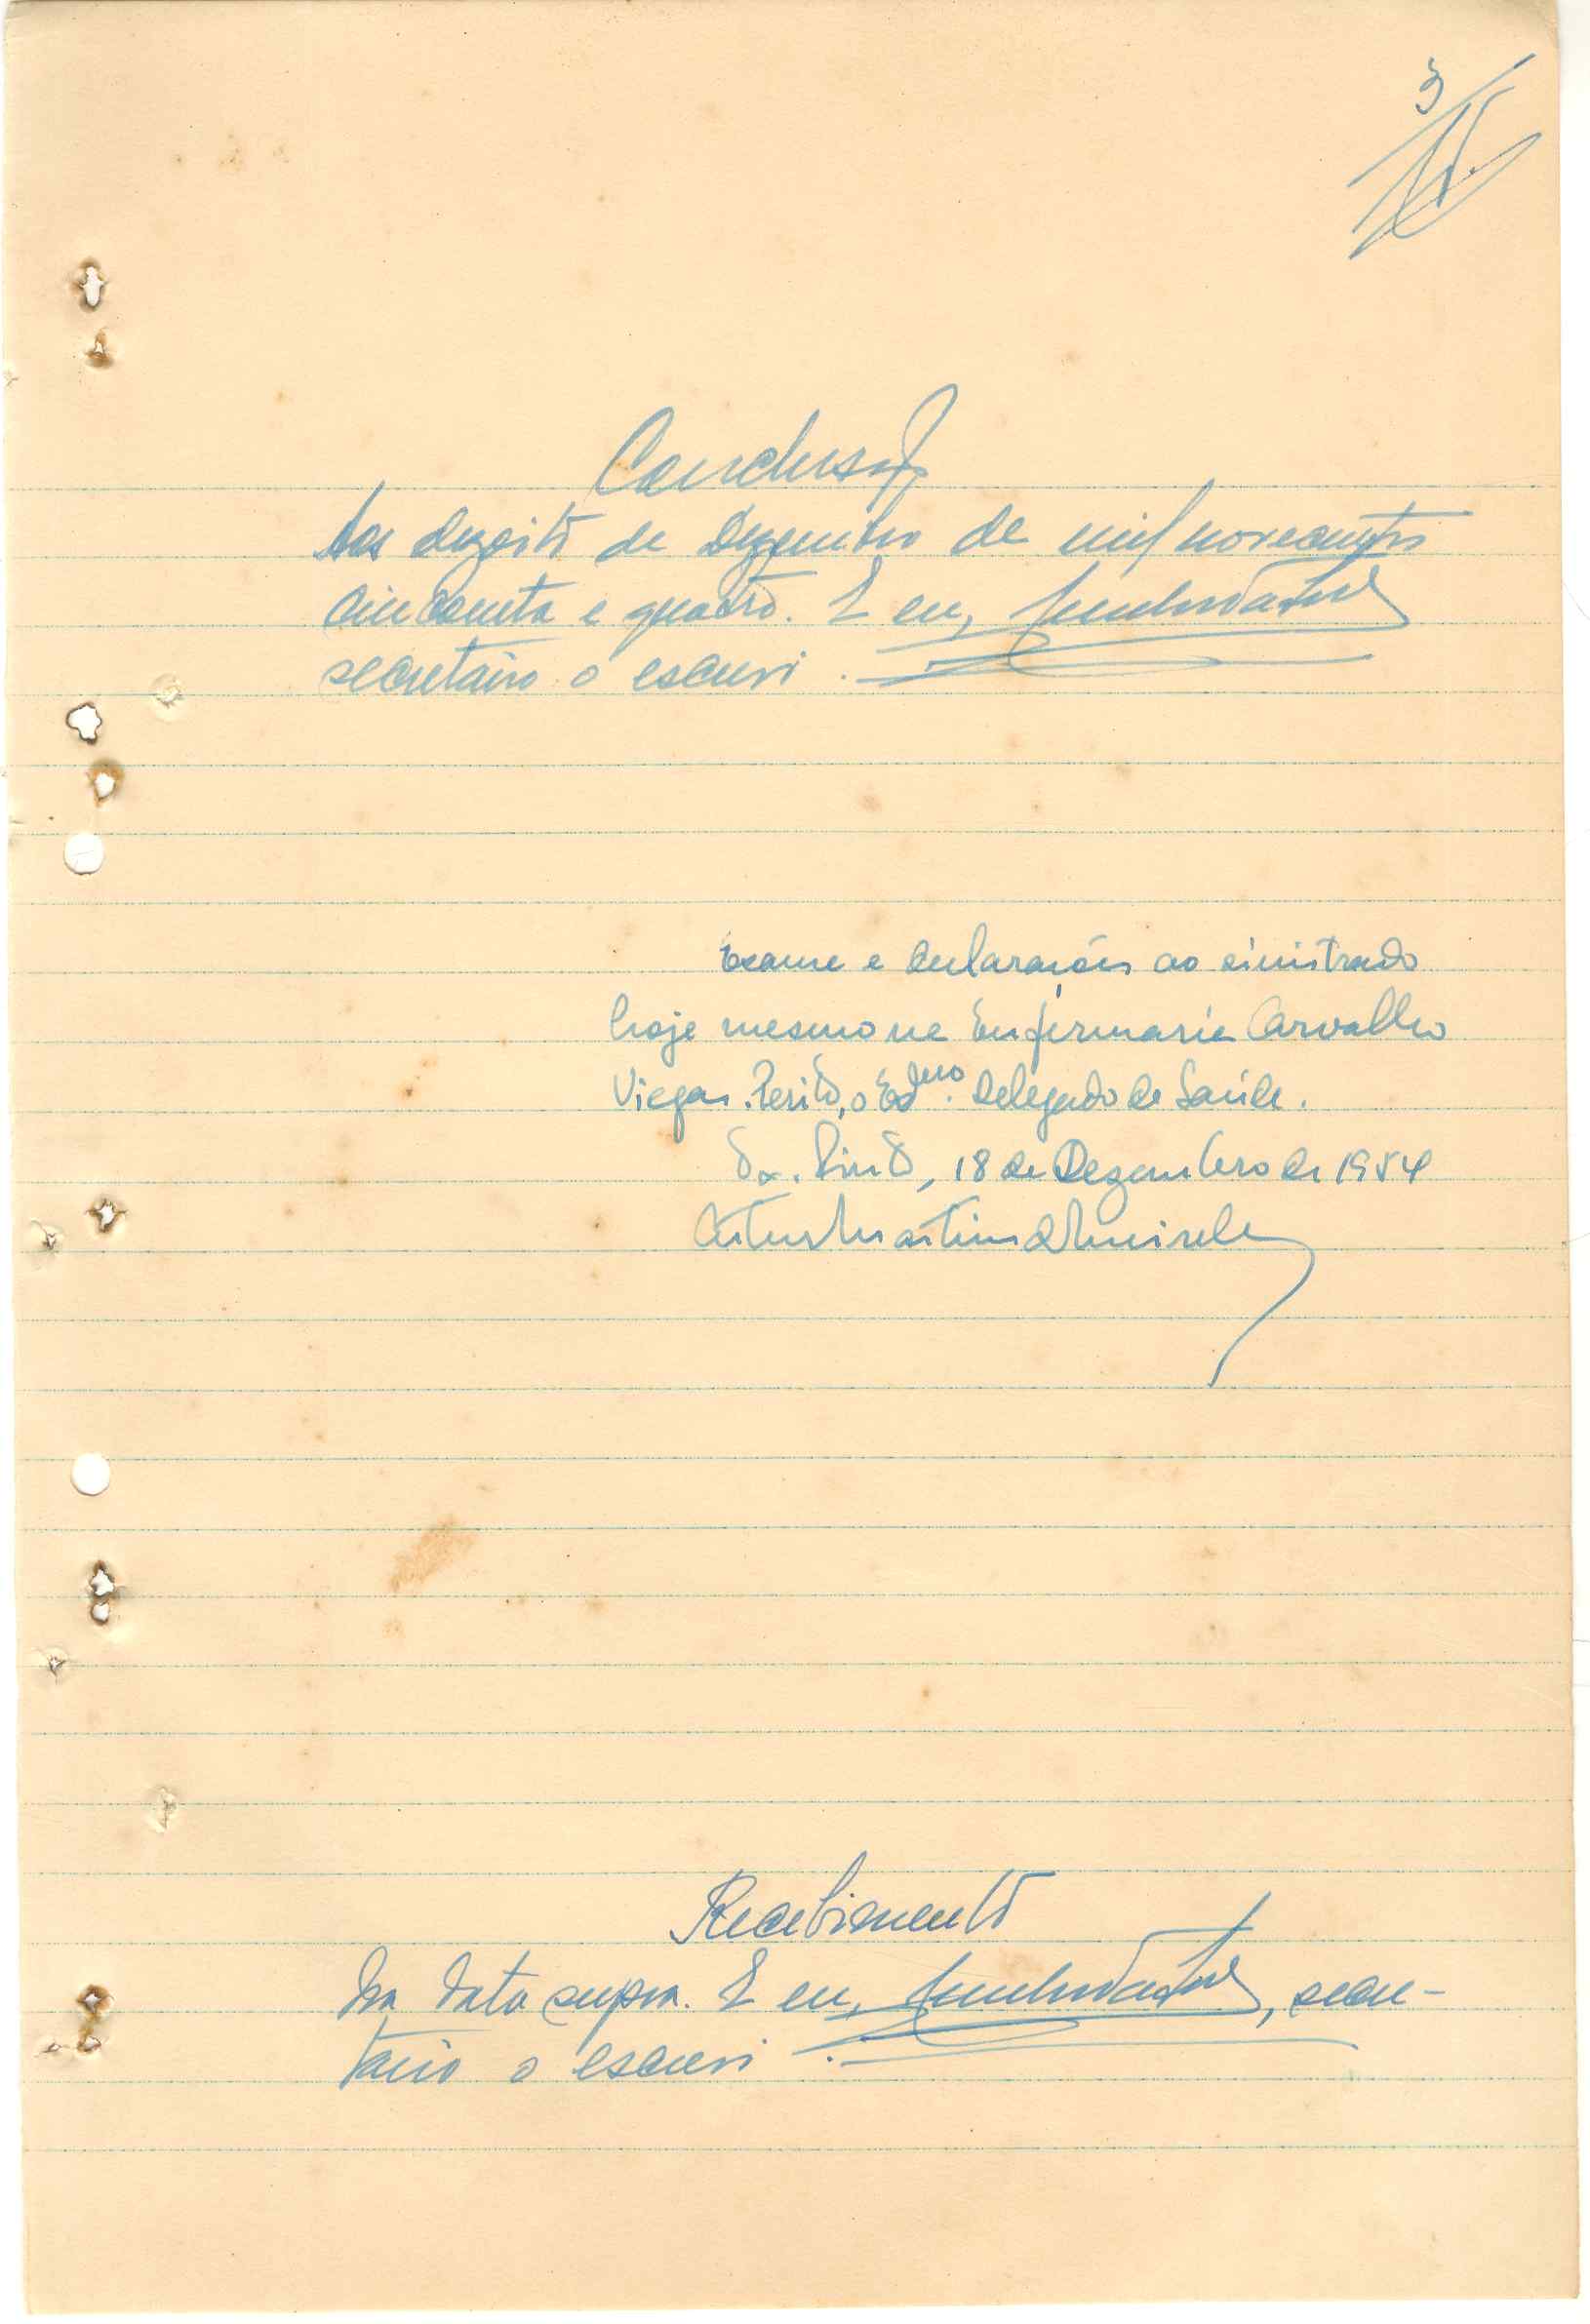 3
Conclusão
Aos dezoito de Dezembro de mil novecentos
cincoenta e quatro. E eu,
secretário o escrevi.
Exame e declarações ao sinistrado
hoje mesmo na Enfermaria Carvalho
Viegas. Perito, o Delegado de Saúde.
18 de Dezembro de 1954
Artur Martins de Meireles
Recebimento
Na data supra. E eu, , secre-
tário o escrevi.